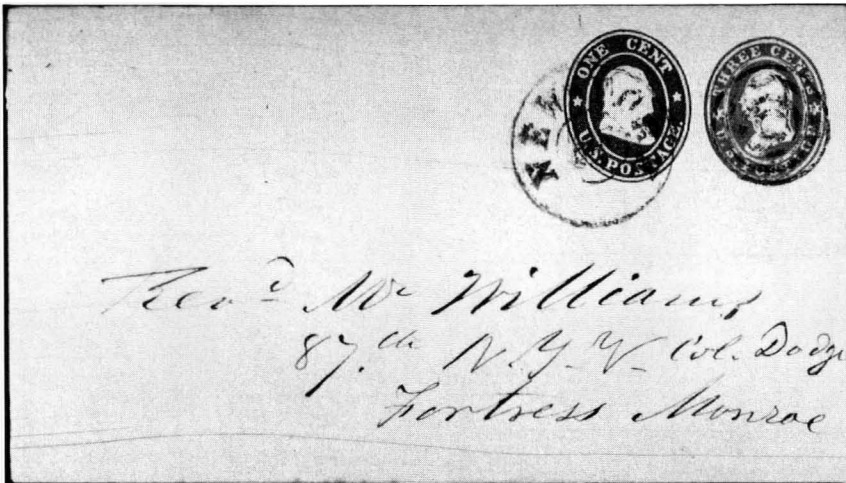 ONE CENT
U.S. POSTAGE.
THREE CENTS
U.S. POSTAGE
NEW
Revd Mr Williams
87.th N.Y.V. Col. Dodge
Fortress Monroe